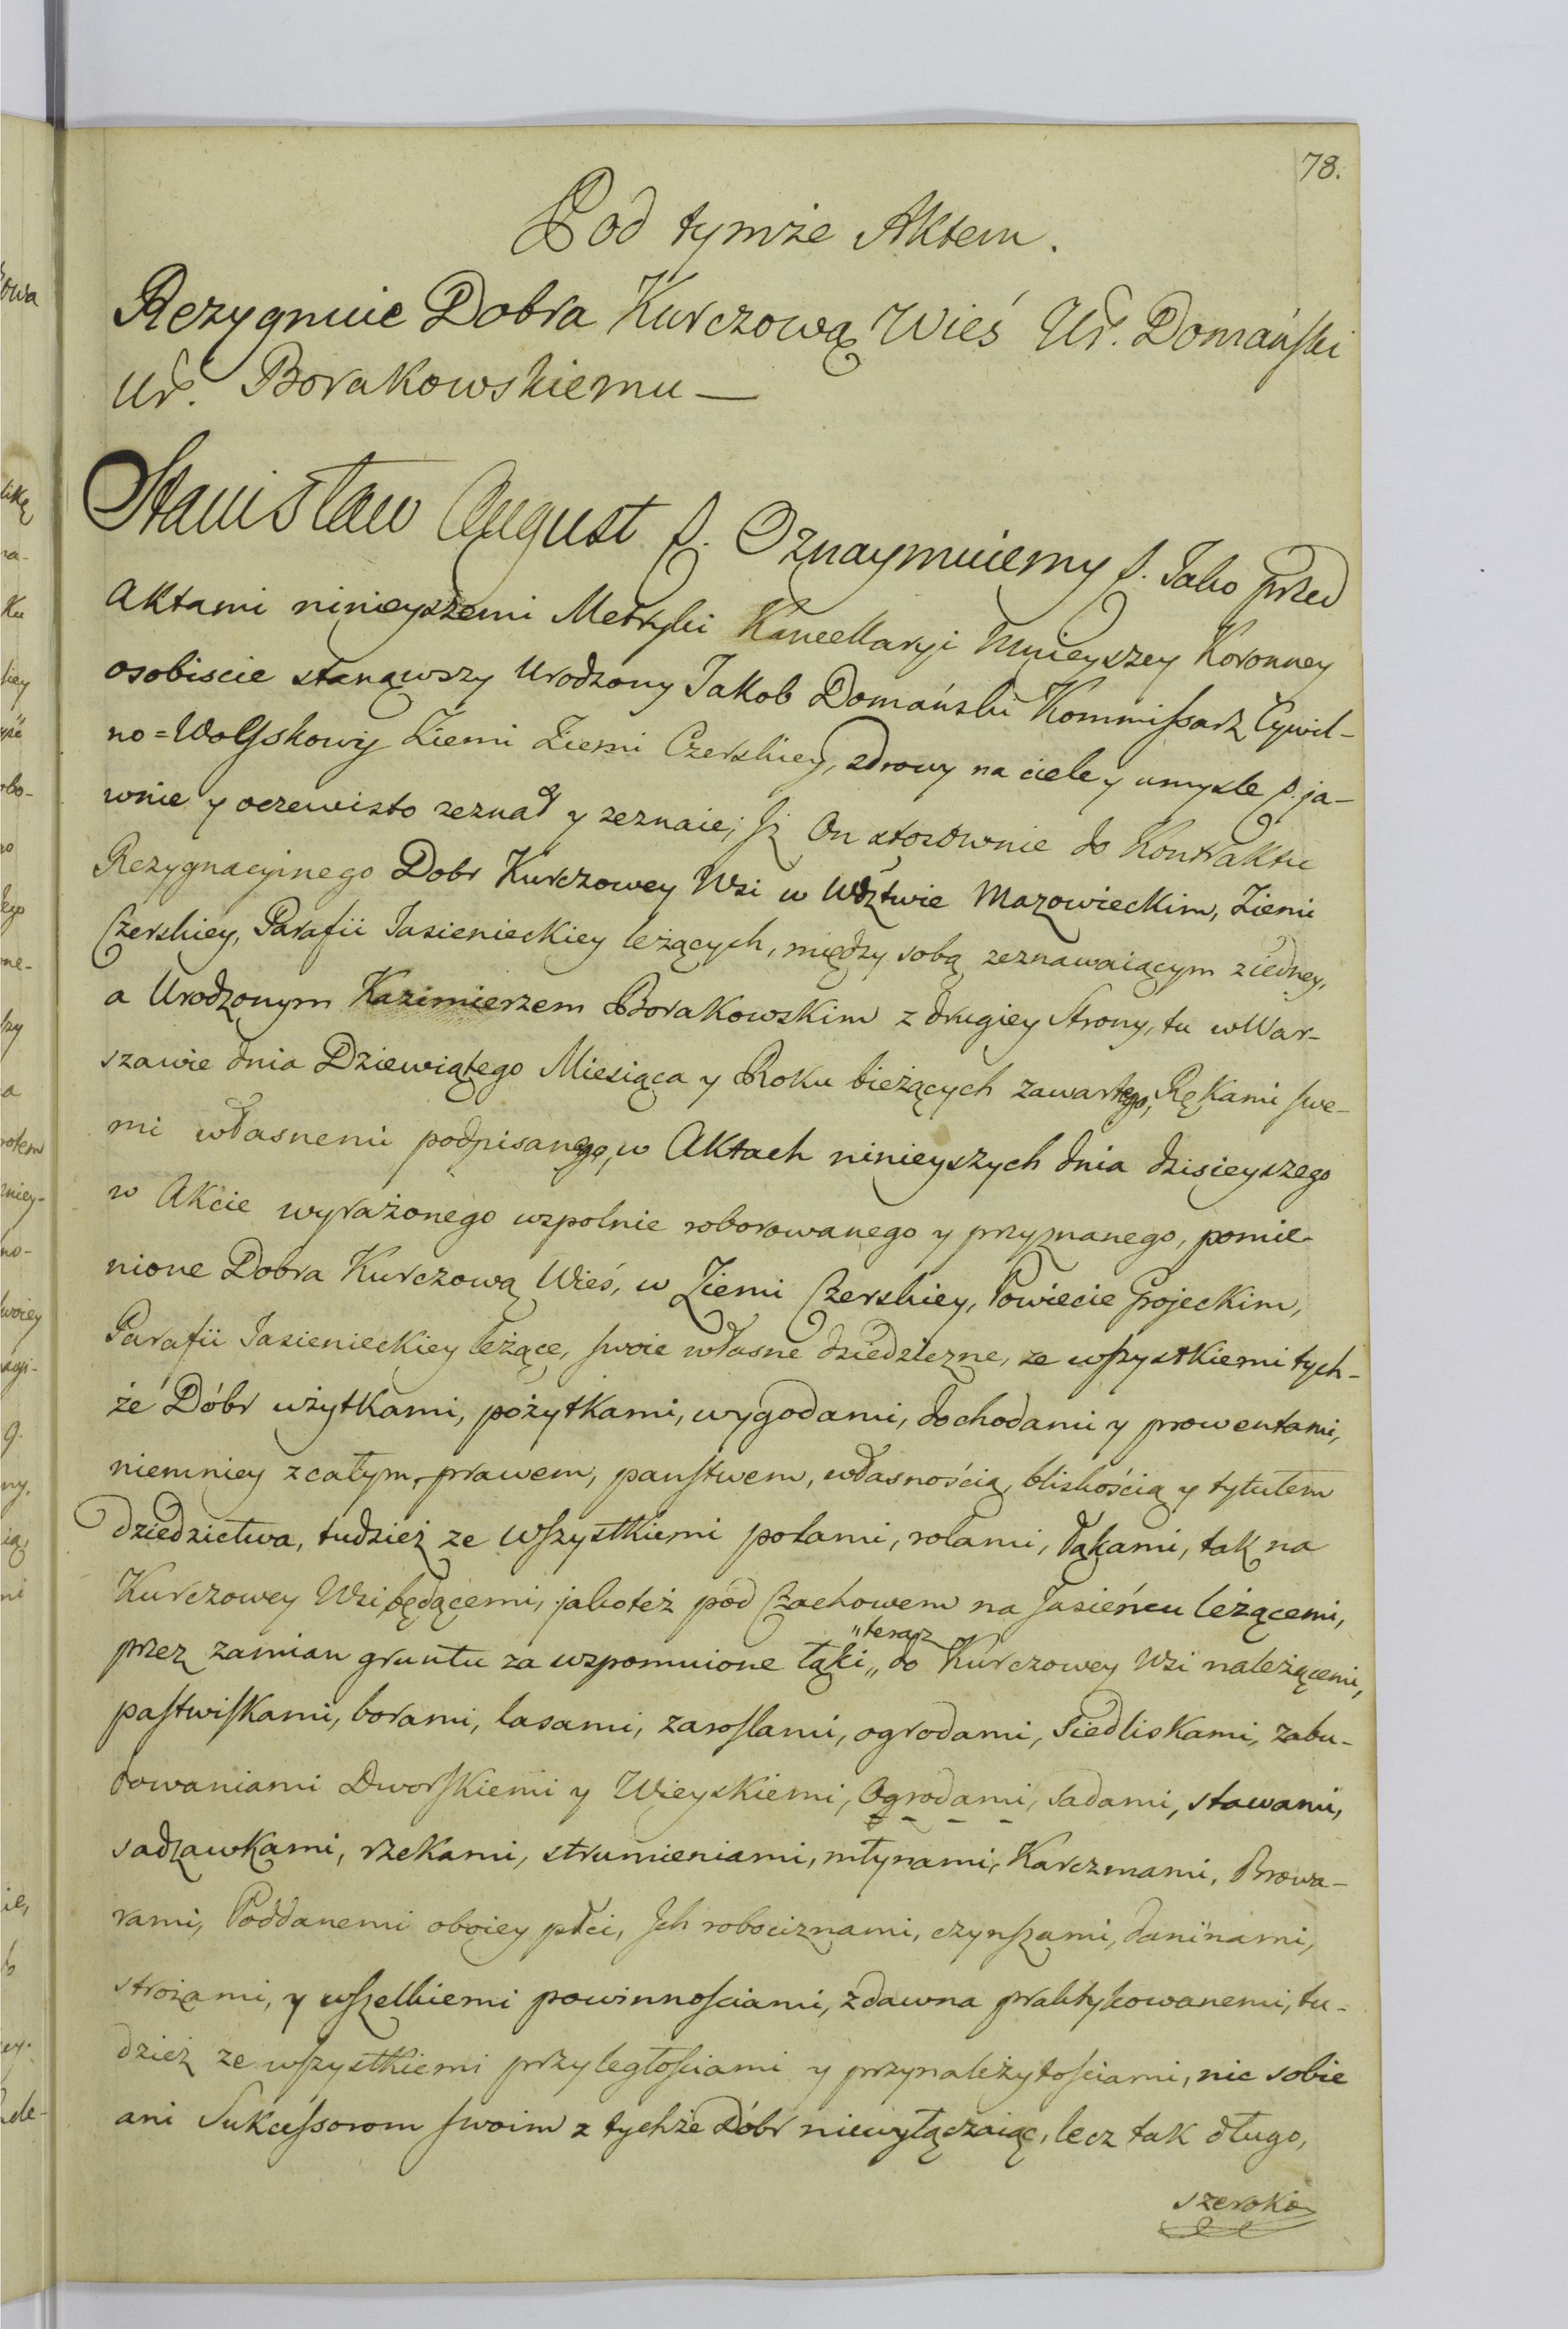 78.
Pod tymże Aktem.
Rezygnuie Dobra Kurczową Wieś Ur. Domański
Ur. Borakowskiemu —
Stanisław August p. Oznaymuiemy p. Jako przed
Aktami ninieyszemi Metryki Kancellaryi Mnieyszey Koronney
osobiscie stanąwszy Urodzony Jakob Domański Kommissarz Cywil-
no=Woyskowy Ziemi Ziemi Czerskiey, zdrowy na ciele y umysle p. ja-
wnie y oczewisto zeznał y zeznaie; Jż On stosownie do Kontraktu
Rezygnacyinego Dobr Kurczowey Wsi w Wdztwie Mazowieckim, Ziemi
Czerskiey, Parafii Jasienieckiey leżących, między sobą zeznawaiącym ziedney,
a Urodzonym Kazimierzem Borakowskim z drugiey Strony, tu w War-
szawie dnia Dziewiątego Miesiąca y Roku bieżących zawartego, Rękami swe-
mi własnemi podpisanego, w Aktach ninieyszych dnia dzisieyszego
w Akcie wyrażonego wspolnie roborowanego y przyznanego, pomie-
nione Dobra Kurczową Wieś, w Ziemi Czerskiey, Powiecie Grojeckim,
Parafii Jasienieckiey leżące, swoie własne dziedziczne, ze wszystkiemi tych-
że Dóbr użytkami, pożytkami, wygodami, dochodami y prowentami,
niemniey z całym prawem, panstwem, własnością, bliskością y tytułem
dziedzictwa, tudzież ze wszystkiemi polami, rolami, łąkami, tak na
Kurczowey Wsi będącemi, jakoteż pod Czachowem na Jasieńcu leżącemi,
przez zamian gruntu za wspomnione łąki „teraz do Kurczowey Wsi należącemi,
pastwiskami, borami, lasami, zaroslami, ogrodami, Siedliskami, zabu-
dowaniami Dworskiemi y Wieyskiemi, Ogrodami, sadami, stawami,
sadzawkami, rzekami, strumieniami, młynami, Karczmami, Browa-
rami, Poddanemi oboiey płci, Jch robociznami, czynszami, daninami,
strożami, y wszelkiemi powinnościami, zdawna praktykowanemi, tu-
dzież ze wszystkiemi przyległościami y przynależytościami, nic sobie
ani Sukcessorom swoim z tychże Dóbr niewyłączaiąc, lecz tak długo,
szeroko